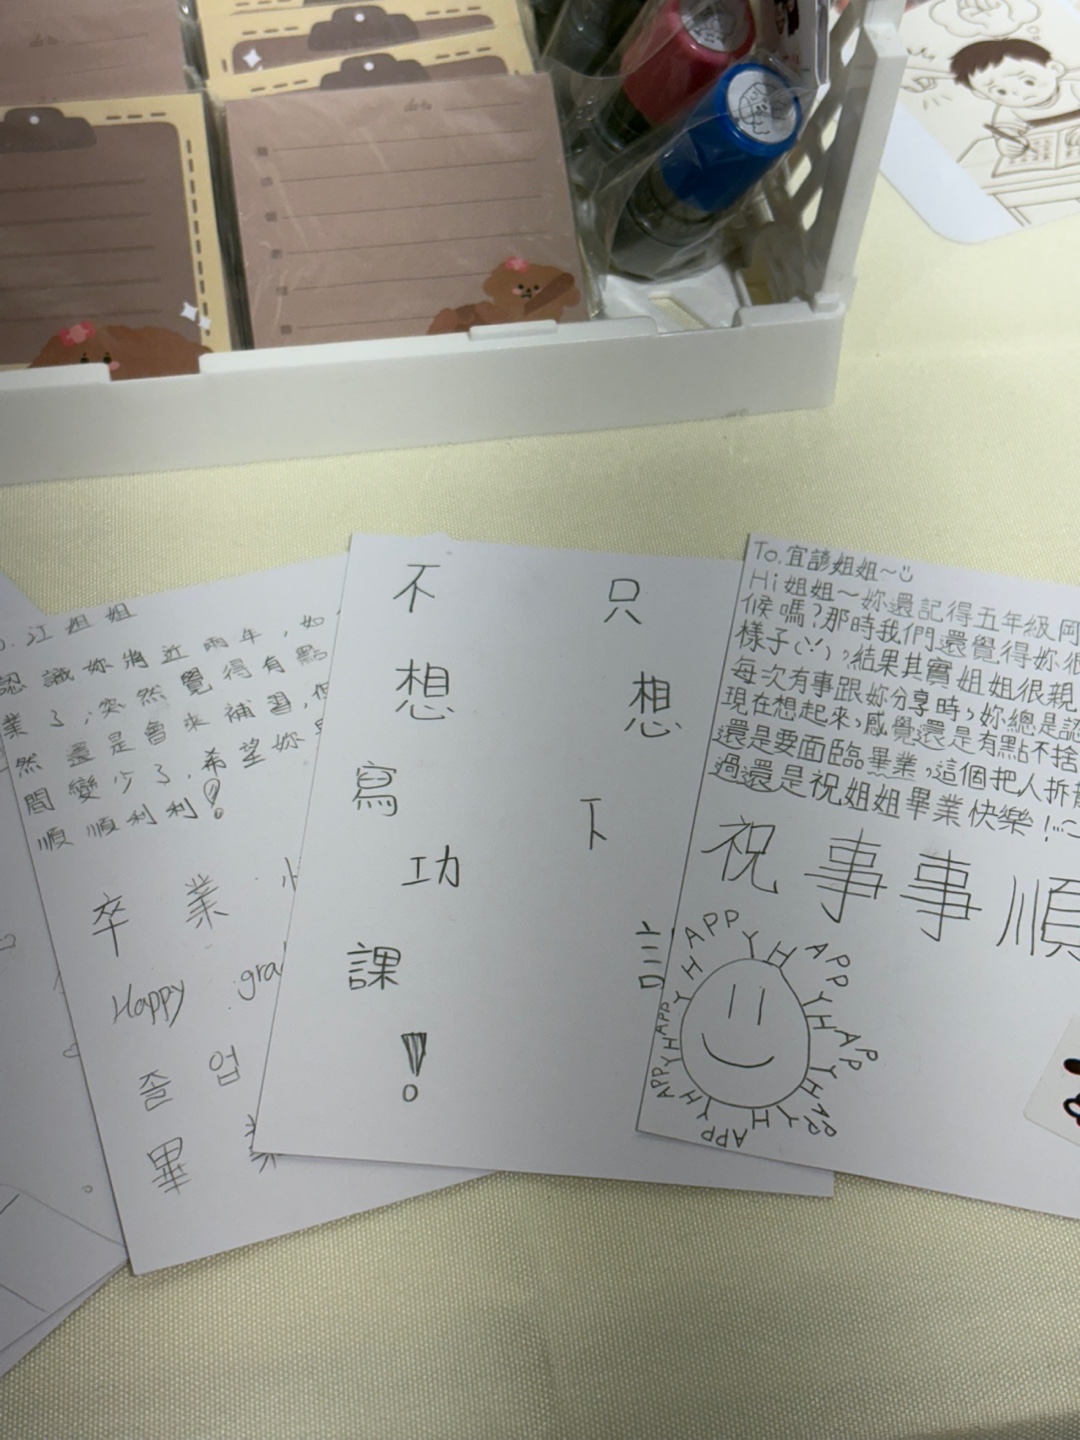 date
date
To.宜諺姐姐~
Hi姐姐~妳還記得五年級
候嗎?那時我們還覺得妳很
樣子(),結果其實姐姐很親
每次有事跟妳分享時,妳總是認
現在想起來,感覺還是有點不捨
還是要面臨畢業,這個把人拆
過還是祝姐姐畢業快樂!
祝事事順
HAPPY HAPPY HAPPY HAPPY HAPPY HAPPY HAPPY
只想下
不想寫功課!
江姐姐
認識妳將近兩年,如
業了,突然覺得有點
然還是會來補習,但
間變少了,希望妳
順順利利!
卒業
Happy gra
졸업
畢業